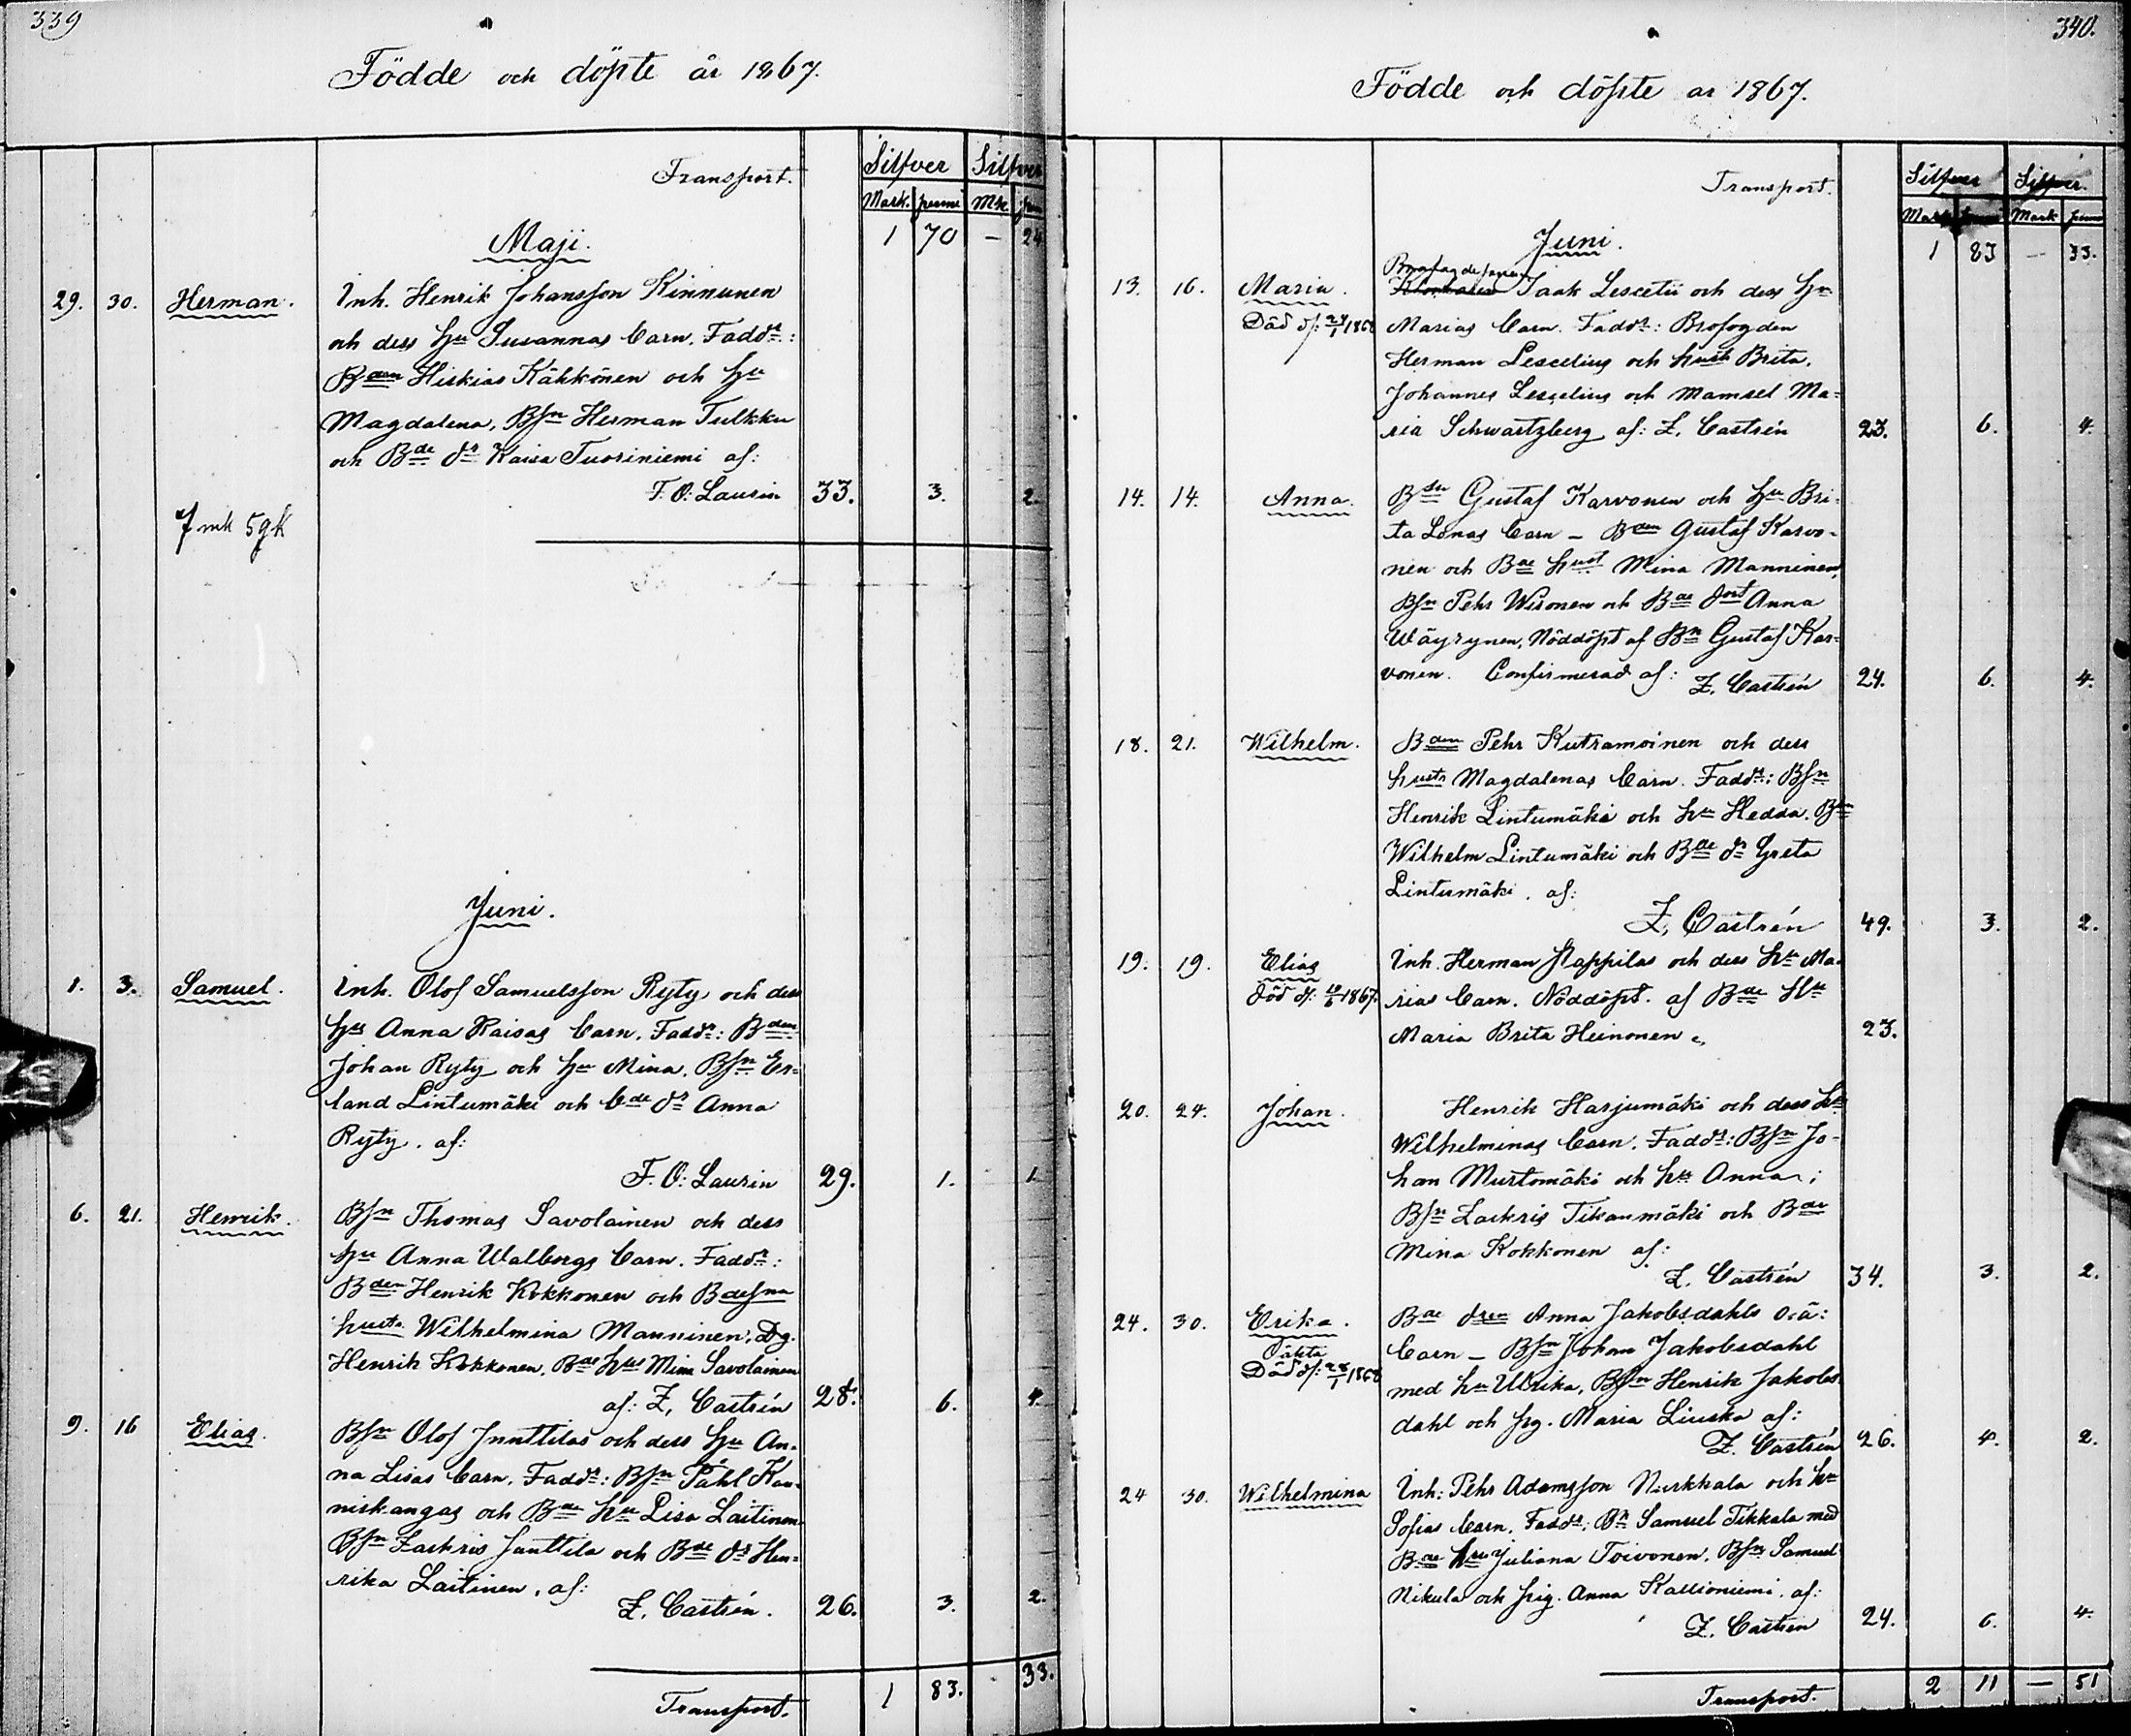 339
Födde och döpte år 1867.
Transport.
Silfver Silfver
Mark. penni Mk. pen
1 70 — 24
Maji.
29. 30. Herman. Inh. Henrik Johansson Kinnunen
och dess hu Susannas barn. Faddr:
Bden Hiskias Kähkönen och hu
Magdalena, Bsn Herman Tulkku
och Bde dr Kaisa Tuoriniemi af:
F. O. Laurin 33. 3. 2.
7 mk 59 k
Juni.
1. 3. Samuel. Inh. Olof Samuelsson Ryty och dess
hus Anna Kaisas barn. Faddr: Bden
Johan Ryty och hu Mina. Bsn Er-
land Lintumäki och Bde dr Anna
Ryty. af:
F. O. Laurin 29. 1. 1
6. 21. Henrik. Bsn Thomas Savolainen och dess
hu Anna Walborgs barn. Faddr:
Bden Henrik Kokkonen och Bdesna
hustr Wilhelmina Manninen, Dg.
Henrik Kokkonen, Bde hus Mina Savolainen
af: Z. Castrén 28. 6. 4.
9. 16 Elias. Bsn Olof Junttilas och dess hu An-
na Lisas barn. Faddr: Bsn Påhl Kau-
niskangas och Bde hu Lisa Laitinen
Bsn Zachris Junttila och Bde dr Hen-
rika Laitinen, af:
Z. Castrén. 26. 3. 2.
Transport. 1 83. 33.
340.
Födde och döpte år 1867.
Transport.
Silfver Silfver.
Mark penni Mark penni
1 83 — 33.
Juni.
13. 16. Maria. Isak Lescelii och dess hu
Död d: 24/1 1868 Marias barn. Faddr: Brofogden
Herman Lescelius och hust Brita.
Johannes Lescelius och Mamsel Ma-
ria Schwartzberg af: Z. Castrén 23. 6. 4.
14. 14. Anna. Bsn Gustaf Karvonen och hu Bri-
ta Lenas barn – Bden Gustaf Karvo-
nen och Bde hust Mina Manninen,
Bsn Pehr Wironen och Bde dott Anna
Wäyrynen, Nöddöpt af Bn Gustaf Kar-
vonen. Confirmerad af: Z. Castrén 24. 6. 4.
18. 21. Wilhelm. Bden Pehr Kutramoinen och dess
hustr Magdalenas barn. Faddr: Bsn
Henrik Lintumäki och hu Hedda. Bsn
Wilhelm Lintumäki och Bde dr Greta
Lintumäki. af:
Z. Castrén 49. 3. 2.
19. 19. Elias Inh. Herman Nappilas och dess hu Ma-
död d: 19/6 1867. rias barn. Nöddöpt. af Bde hu
Maria Brita Heinonen. 23.
20. 24. Johan. Henrik Harjumäki och dess hu
Wilhelminas barn. Faddr: Bsn Jo-
han Murtomäki och hu Anna;
Bsn Zachris Tikanmäki och Bde
Mina Kokkonen af:
Z. Castrén 34. 3. 2.
24. 30. Erika. Bde dren Anna Jakobsdahls o.ä:
Oäkta barn – Bsn Johan Jakobsdahl
Död d: 28/1 1868 med hu Ulrika, Bsn Henrik Jakobs-
dahl och pig. Maria Liuska af:
Z. Castrén 26. 4. 2.
24 30. Wilhelmina Inh: Pehr Adamsson Nurkkala och hu
Sofias barn. Faddr: Bn Samuel Tikkala med
Bde hu Juliana Toivonen, Bsn Samuel
Nikula och pig. Anna Kallioniemi. af:
Z. Castren 24. 6. 4.
Transport. 2 11 — 51